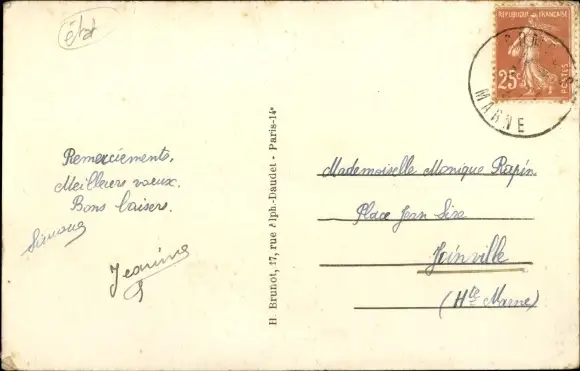 été
REPUBLIQUE FRANÇAISE
25c
POSTES
MARNE
Remerciements,
Meilleurs voeux.
Bons baisers.
Simone
Jeanine
H. Brunot, 17, rue Alph.-Daudet - Paris-14e
Mademoiselle Monique Rapin
Place Jean Sixe
Joinville
(Hte Marne)